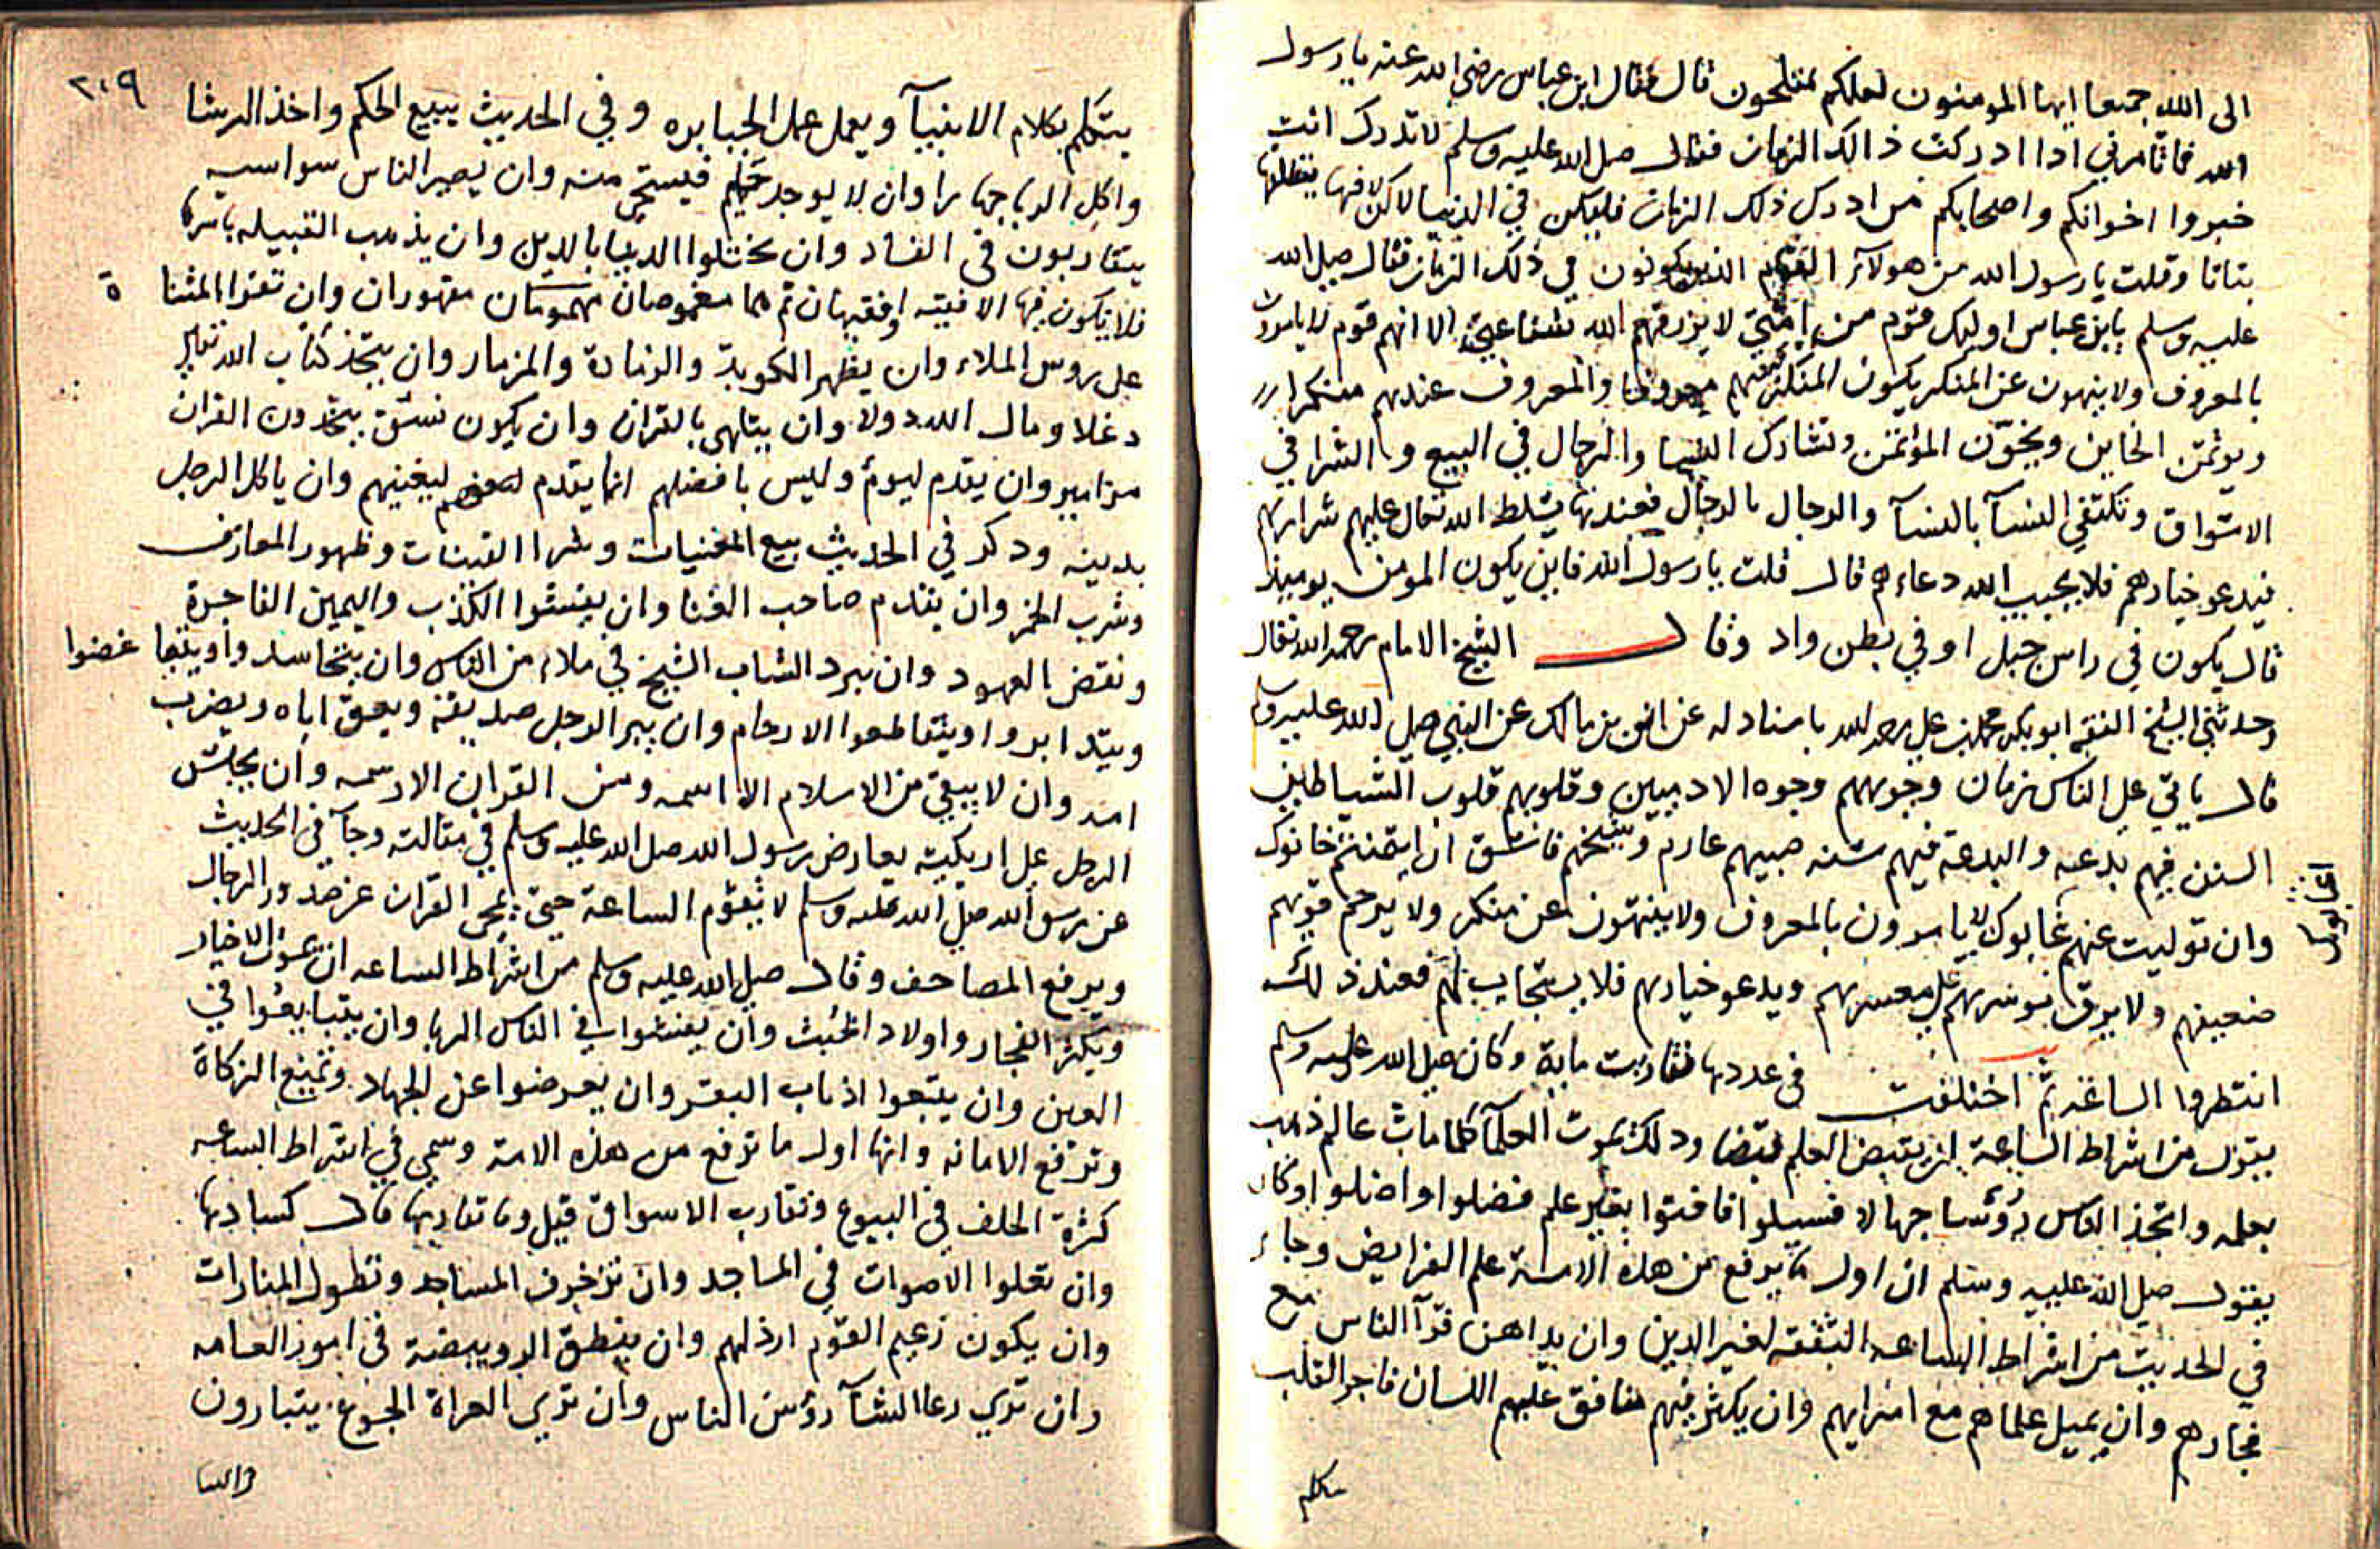 الى الله جميعا ايها المومنون لعلكم تفلحون قال فقال ابن عباس رضي الله عنه يا رسول
الله فما تامرني اذا ادركت ذالك الزمان فقال صلى الله عليه وسلم لا تدرك انت
خبروا اخوانكم واصحابكم من ادرك ذلك الزمان فليكن في الدنيا
وقلت يا رسول الله من هولآء القوم الذين يكونون في ذلك الزمان فقال صلى الله
عليه وسلم يابن عباس اوليك قوم من امتي لا يرزقهم الله شفاعتي الا انهم قوم لا يامرون
بالمعروف ولا ينهون عن المنكر يكون المنكر فيهم معروفا والمعروف عندهم منكرا
ويوتمن الخاين ويخوّن المؤتمن وتشارك النسا والرجال في البيع والشرا في
الاسواق وتكتفي النسآ بالنسآ والرجال بالرجال فعندها يسلط الله تعالى عليهم شرارهم
فيدعو خيارهم فلا يجيب الله دعاءهم قال قلت يا رسول الله فاين يكون المومن يوميذ
قال يكون في راس جبل او في بطن واد وقال الشيخ الامام رحمه الله تعالى
وحدثني الشيخ الفقيه ابو بكر محمد بن علي رحمه الله باسناد له عن انس بن مالك عن النبي صلى الله عليه وسلم
قال ياتي على الناس زمان وجوههم وجوه الادميين وقلوبهم قلوب الشياطين
السنن فيهم بدعه والبدعة فيهم سنه صبيهم عارم وشيخهم فاسق ان ايتمنتهم خانوك
وان توليت عنهم عابوك لا يامرون بالمعروف ولا ينهون عن منكر ولا يرحم قويهم
اغتابوك
ضعيفهم ولا يوقر موسرهم على معسرهم ويدعو خيارهم فلا يستجاب لهم فعند ذلك
انتظروا الساعة ثم اختلفت في عددها فقاربت ماية وكان صلى الله عليه وسلم
يقول من اشراط الساعة ان يقبض العلم قبضا وذلك بموت العلمآ كلما مات عالم ذهب
بعلمه واتخذ الناس رؤسا جهالا فسيلوا فافتوا بغير علم فضلوا واضلوا وكان
يقول صلى الله عليه وسلم ان اول ما يرفع من هذه الامة علم الفرايض وجاء
في الحديث من اشراط الساعه التفقه لغير الدين وان يداهن قرآ الناس مع
فجارهم وان يميل علماهم مع امرايهم وان يكثر فيهم منافق عليم اللسان فاجر القلب
يتكلم
٢٠٩
يتكلم بكلام الانبيآ ويعمل عمل الجبابره وفي الحديث بيع الحكم واخذ الرشا
واكل الربا جهارا وان لا يوجد حكيم فيستحى منه وان يصير الناس سواسيه
يتقاربون في الفساد وان يختلوا الدنيا بالدين وان يذهب القبيله باسرها
فلا يكون فيها الا فقيه او فقيهان ثم هما مغموصان مهموسان مقهوران وان تقرا المثناة
على روس الملاء وان يظهر الكوبة والزمارة والمزمار وان يتخذ كتاب الله تعالى
دغلا ومال الله دولا وان يتلهى بالقران وان يكون نسق يتخذون القران
مزامير وان يقدم ليوم وليس بافضلهم انما يقدم ليغنيهم وان ياكل الرجل
بدينه وذكر في الحديث بيع المغنيات وشرا القينات وظهور المعازف
وشرب الخمر وان يقدم صاحب الغنا وان يفشوا الكذب واليمين الفاجرة
ونقض العهود وان يرد الشاب الشيخ في ملاء من الناس وان يتحاسدوا ويتباغضوا
ويتدابروا ويتقاطعوا الارحام وان يبر الرجل صديقه ويعق اباه ويضرب
امه وان لا يبقى من الاسلام الا اسمه ومن القران الا رسمه وان يجلس
الرجل على اريكته يعارض رسول الله صلى الله عليه وسلم في مقالته وجآ في الحديث
عن رسول الله صلى الله عليه وسلم لا تقوم الساعة حتى يمحى القران عن صدور الرجال
ويرفع المصاحف وقال صلى الله عليه وسلم من اشراط الساعه ان يموت الاخيار
ويكثر الفجار واولاد الخبث وان يفشوا في الناس الربا وان يتبايعوا في
العين وان يتبعوا اذناب البقر وان يعرضوا عن الجهاد وتمنع الزكاة
وترفع الامانه وانها اول ما ترفع من هذه الامة وسمي في اشراط الساعه
كثرة الحلف في البيوع وتقارب الاسواق قيل وما تقاربها قال كسادها
وان تعلوا الاصوات في المساجد وان تزخرف المساجد وتطول المنارات
وان يكون زعيم القوم ارذلهم وان ينطق الرويبضة في امور العامه
وان تري رعا الشآ رؤس الناس وان تري العراة الجوع يتبارون